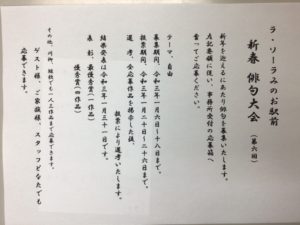 ラ・ソーラみのお駅前
新春 俳句大会（第六回）
新年を迎えるにあたり俳句を募集いたします。
左記要領に従い、事務所受付の応募箱へ
奮ってご応募ください。
テーマ、自由
募集期間、令和三年一月六日～十八日まで。
投票期間、令和三年一月二十日～二十六日まで。
選考、全応募作品を掲示した後、
投票により選考いたします。
結果発表は令和三年一月三十一日です。
表彰、最優秀賞（一作品）
優秀賞（四作品）
その他、川柳、短歌でも一人三作品まで応募できます。
ゲスト様、ご家族様、スタッフどなたでも
応募できます。